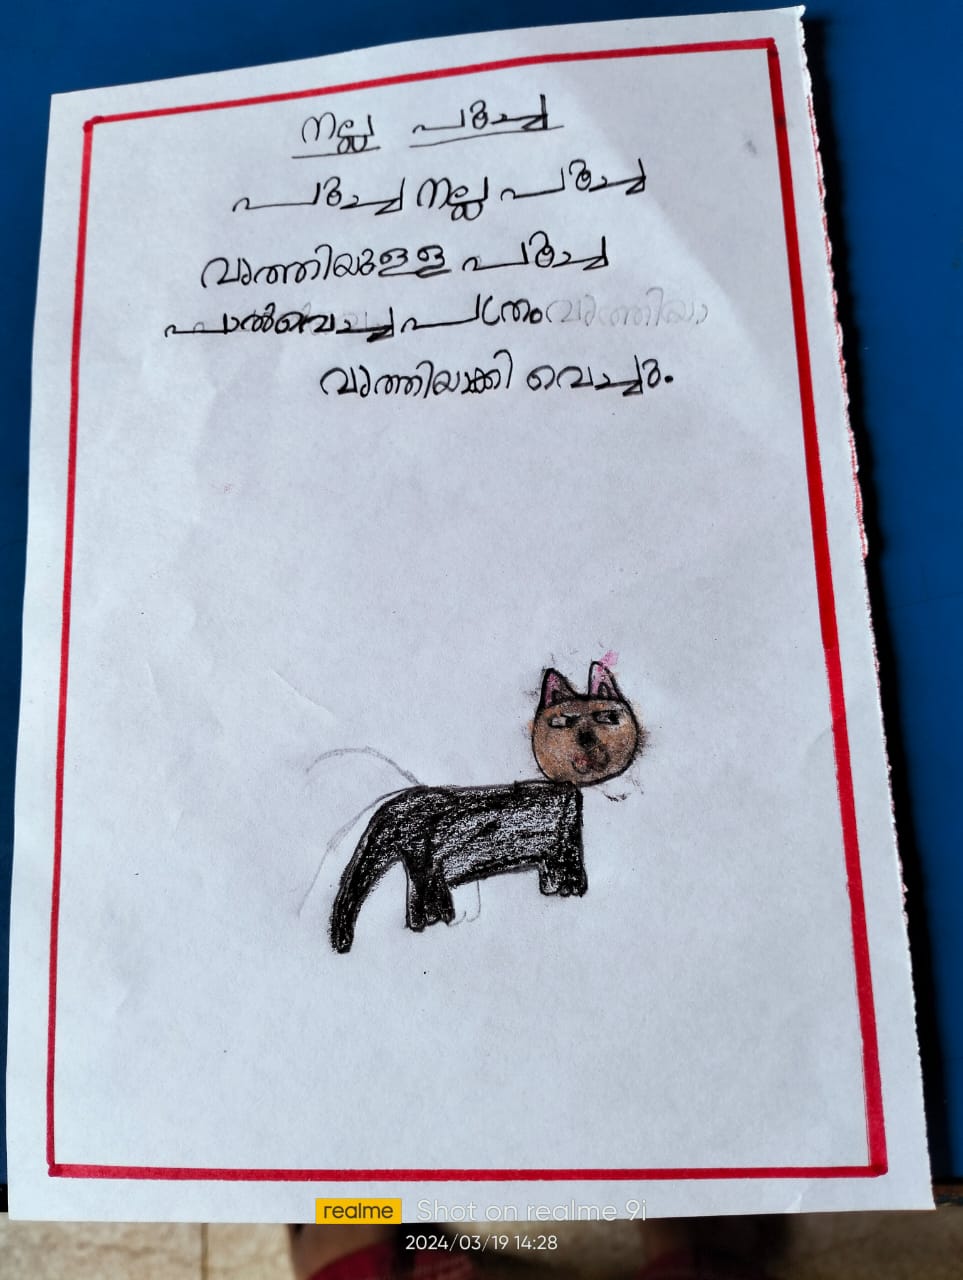 നല്ല പൂച്ച
പൂച്ച നല്ല പൂച്ച
വൃത്തിയുള്ള പൂച്ച
പാൽവെച്ച പാത്രം വൃത്തിയാ
വൃത്തിയാക്കി വെച്ചു.
realme Shot on realme 9i
2024/03/19 14:28